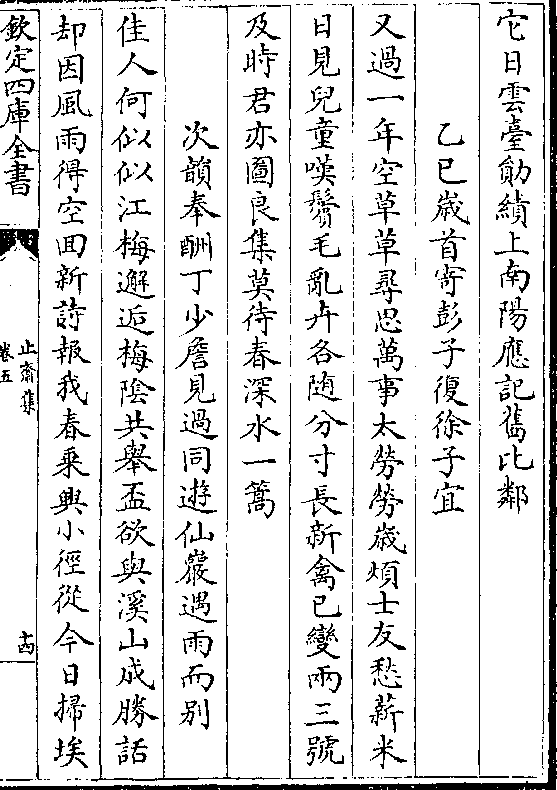 它日雲臺勛績上南陽應記舊比鄰
乙巳嵗首寄彭子復徐子宜
又過一年空草草尋思萬事太勞勞嵗煩士友愁薪米
日見兒童嘆鬢毛亂卉各随分寸長新禽已變兩三號
及時君亦圖良集莫待春深水一篙
次韻奉酬丁少詹見過同遊仙巖遇雨而别
佳人何似似江梅邂逅梅陰共舉盃欲與溪山成勝話
却因風雨得空回新詩報我春乗興小徑從今日掃埃
欽定四庫全書
止齋集
卷五
十四